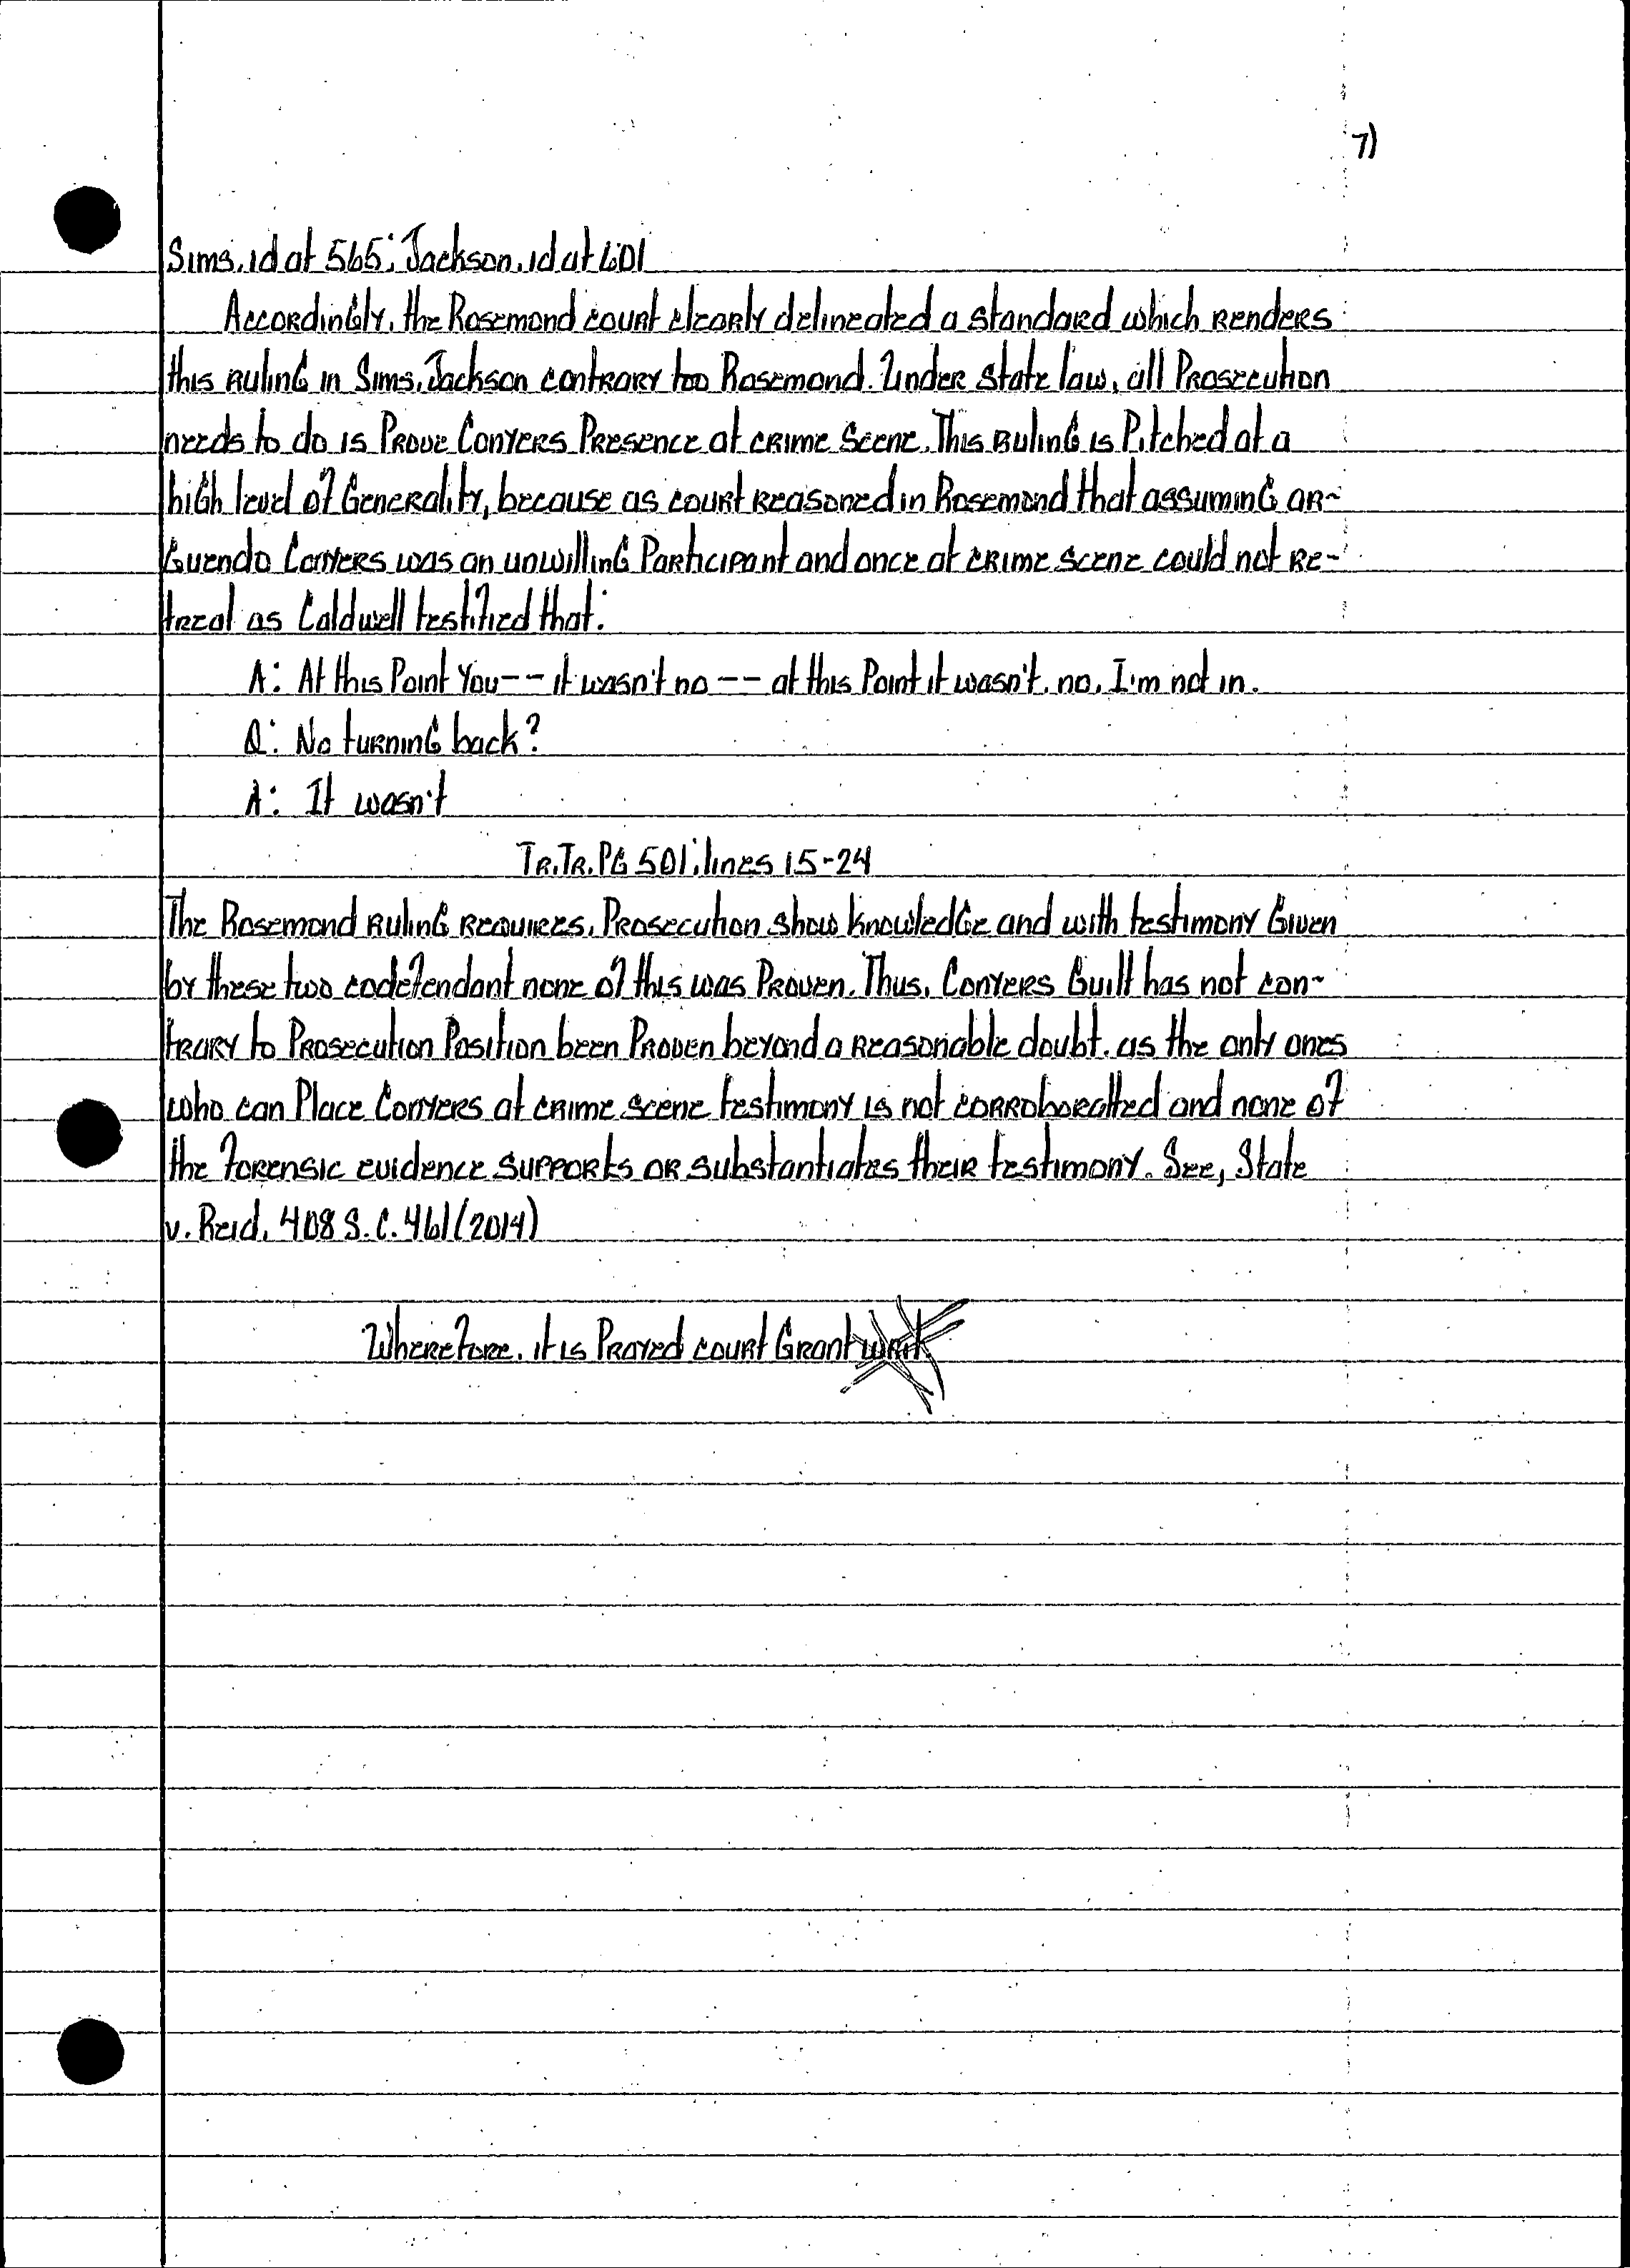 7)
Sims, id at 565; Jackson, id at 601
Accordingly, the Rosemond court clearly delineated a standard which renders
this ruling in Sims, Jackson contrary too Rosemond. Under state law, all Prosecution
needs to do is Prove Conyers Presence at crime scene. This ruling is Pitched at a
high level of Generality, because as court reasoned in Rosemond that assuming ar-
Guendo Conyers was an unwilling Participant and once at crime scene could not re-
treat as Caldwell testified that:
A: At this Point You-- it wasn't no -- at this Point it wasn't, no, I'm not in.
Q: No turning back?
A: It wasn't
Tr.Tr. PG 501; lines 15-24
The Rosemond ruling requires, Prosecution show knowledge and with testimony Given
by these two codefendant none of this was Proven. Thus, Conyers Guilt has not con-
trary to Prosecution Position been Proven beyond a reasonable doubt, as the only ones
who can Place Conyers at crime scene testimony is not corroboratted and none of
the forensic evidence supports or substantiates their testimony. See, State
v. Reid, 408 S.C. 461 (2014)
Wherefore, it is Prayed court Grant writ.